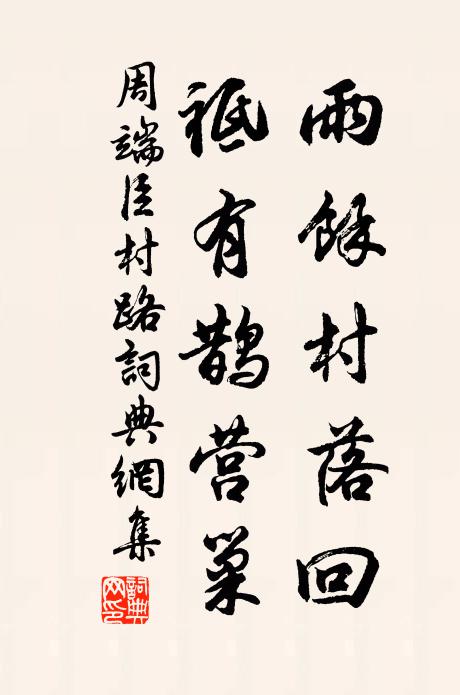 雨餘村落回
祗有鹊营巢
周端臣村路詞典網集
詞典網印